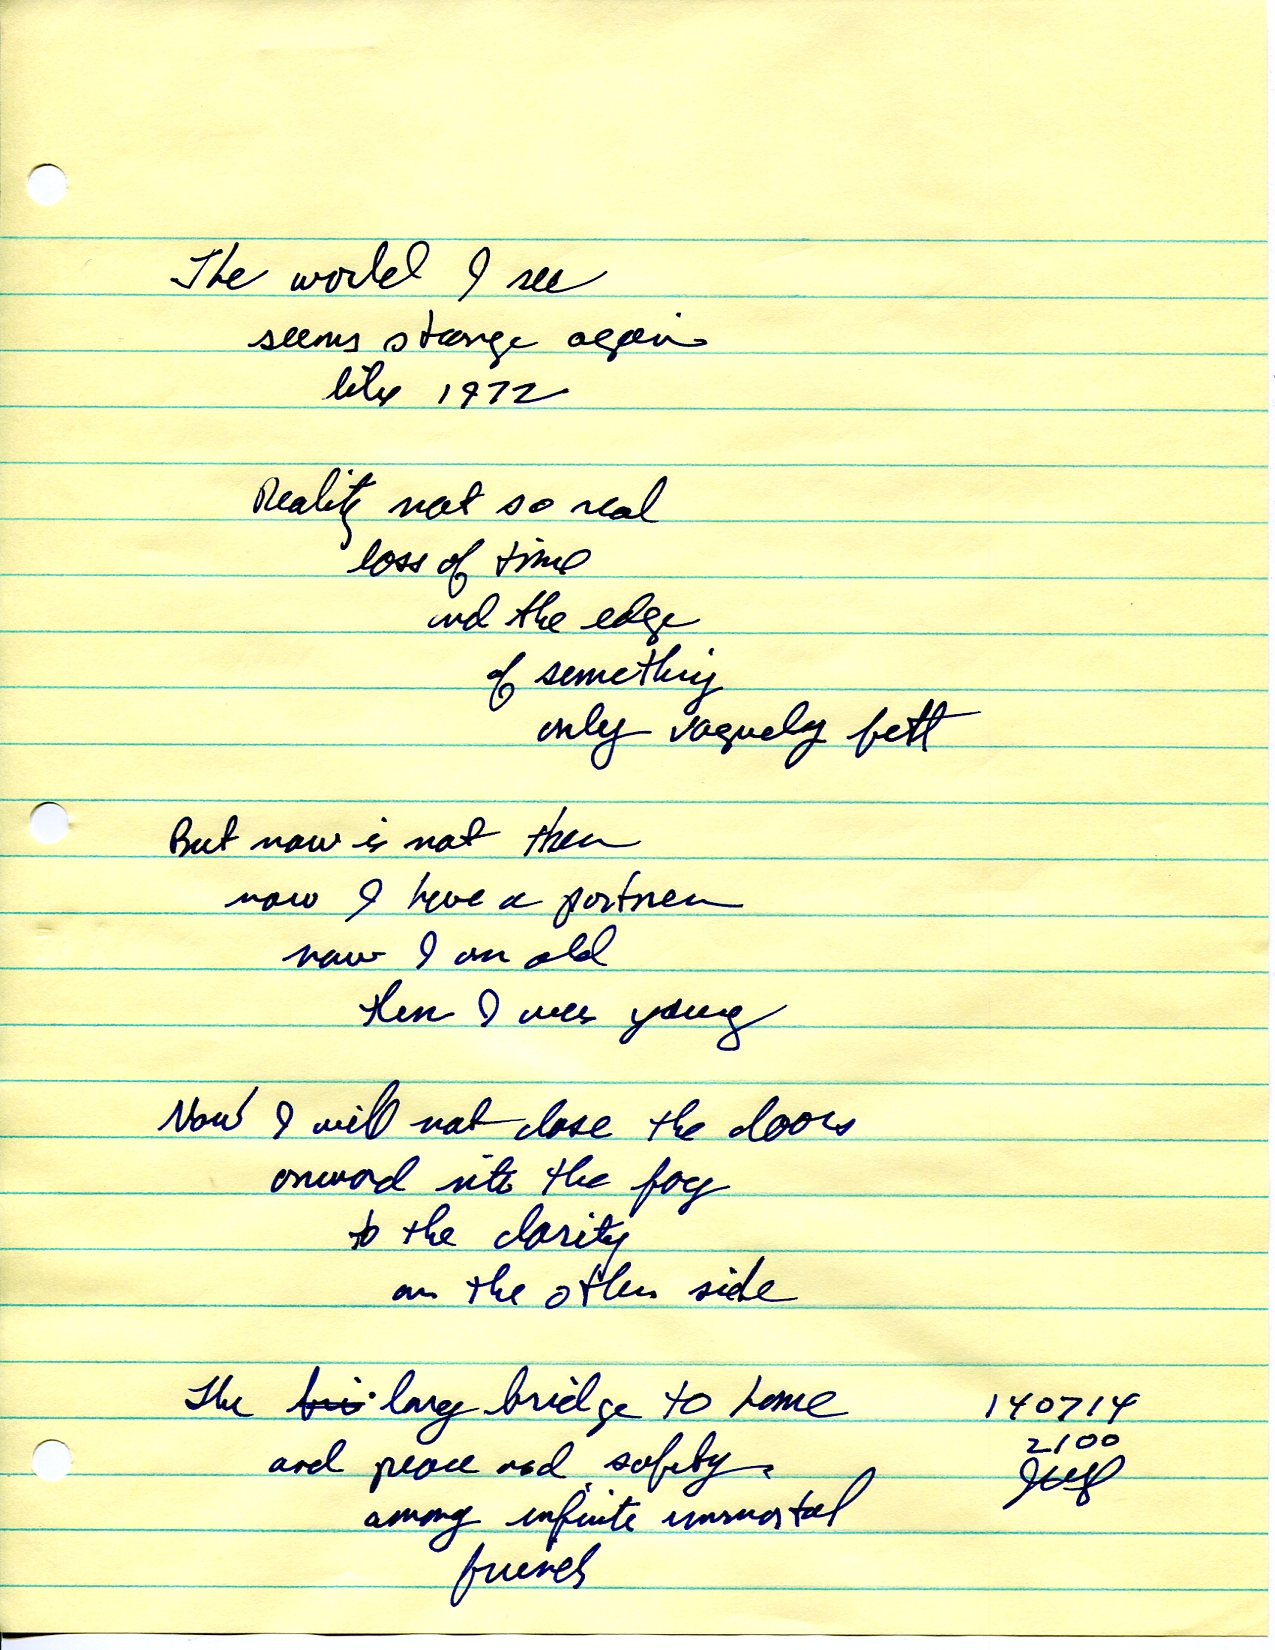 The world I see
seems strange again
like 1972
Reality not so real
loss of time
and the edge
of something
only vaguely felt
But now is not then
now I have a partner
now I am old
then I was young
Now I will not close the doors
onward into the fog
to the clarity
on the other side
The long bridge to home
and peace and safety
among infinite immortal
friends
140714
2100